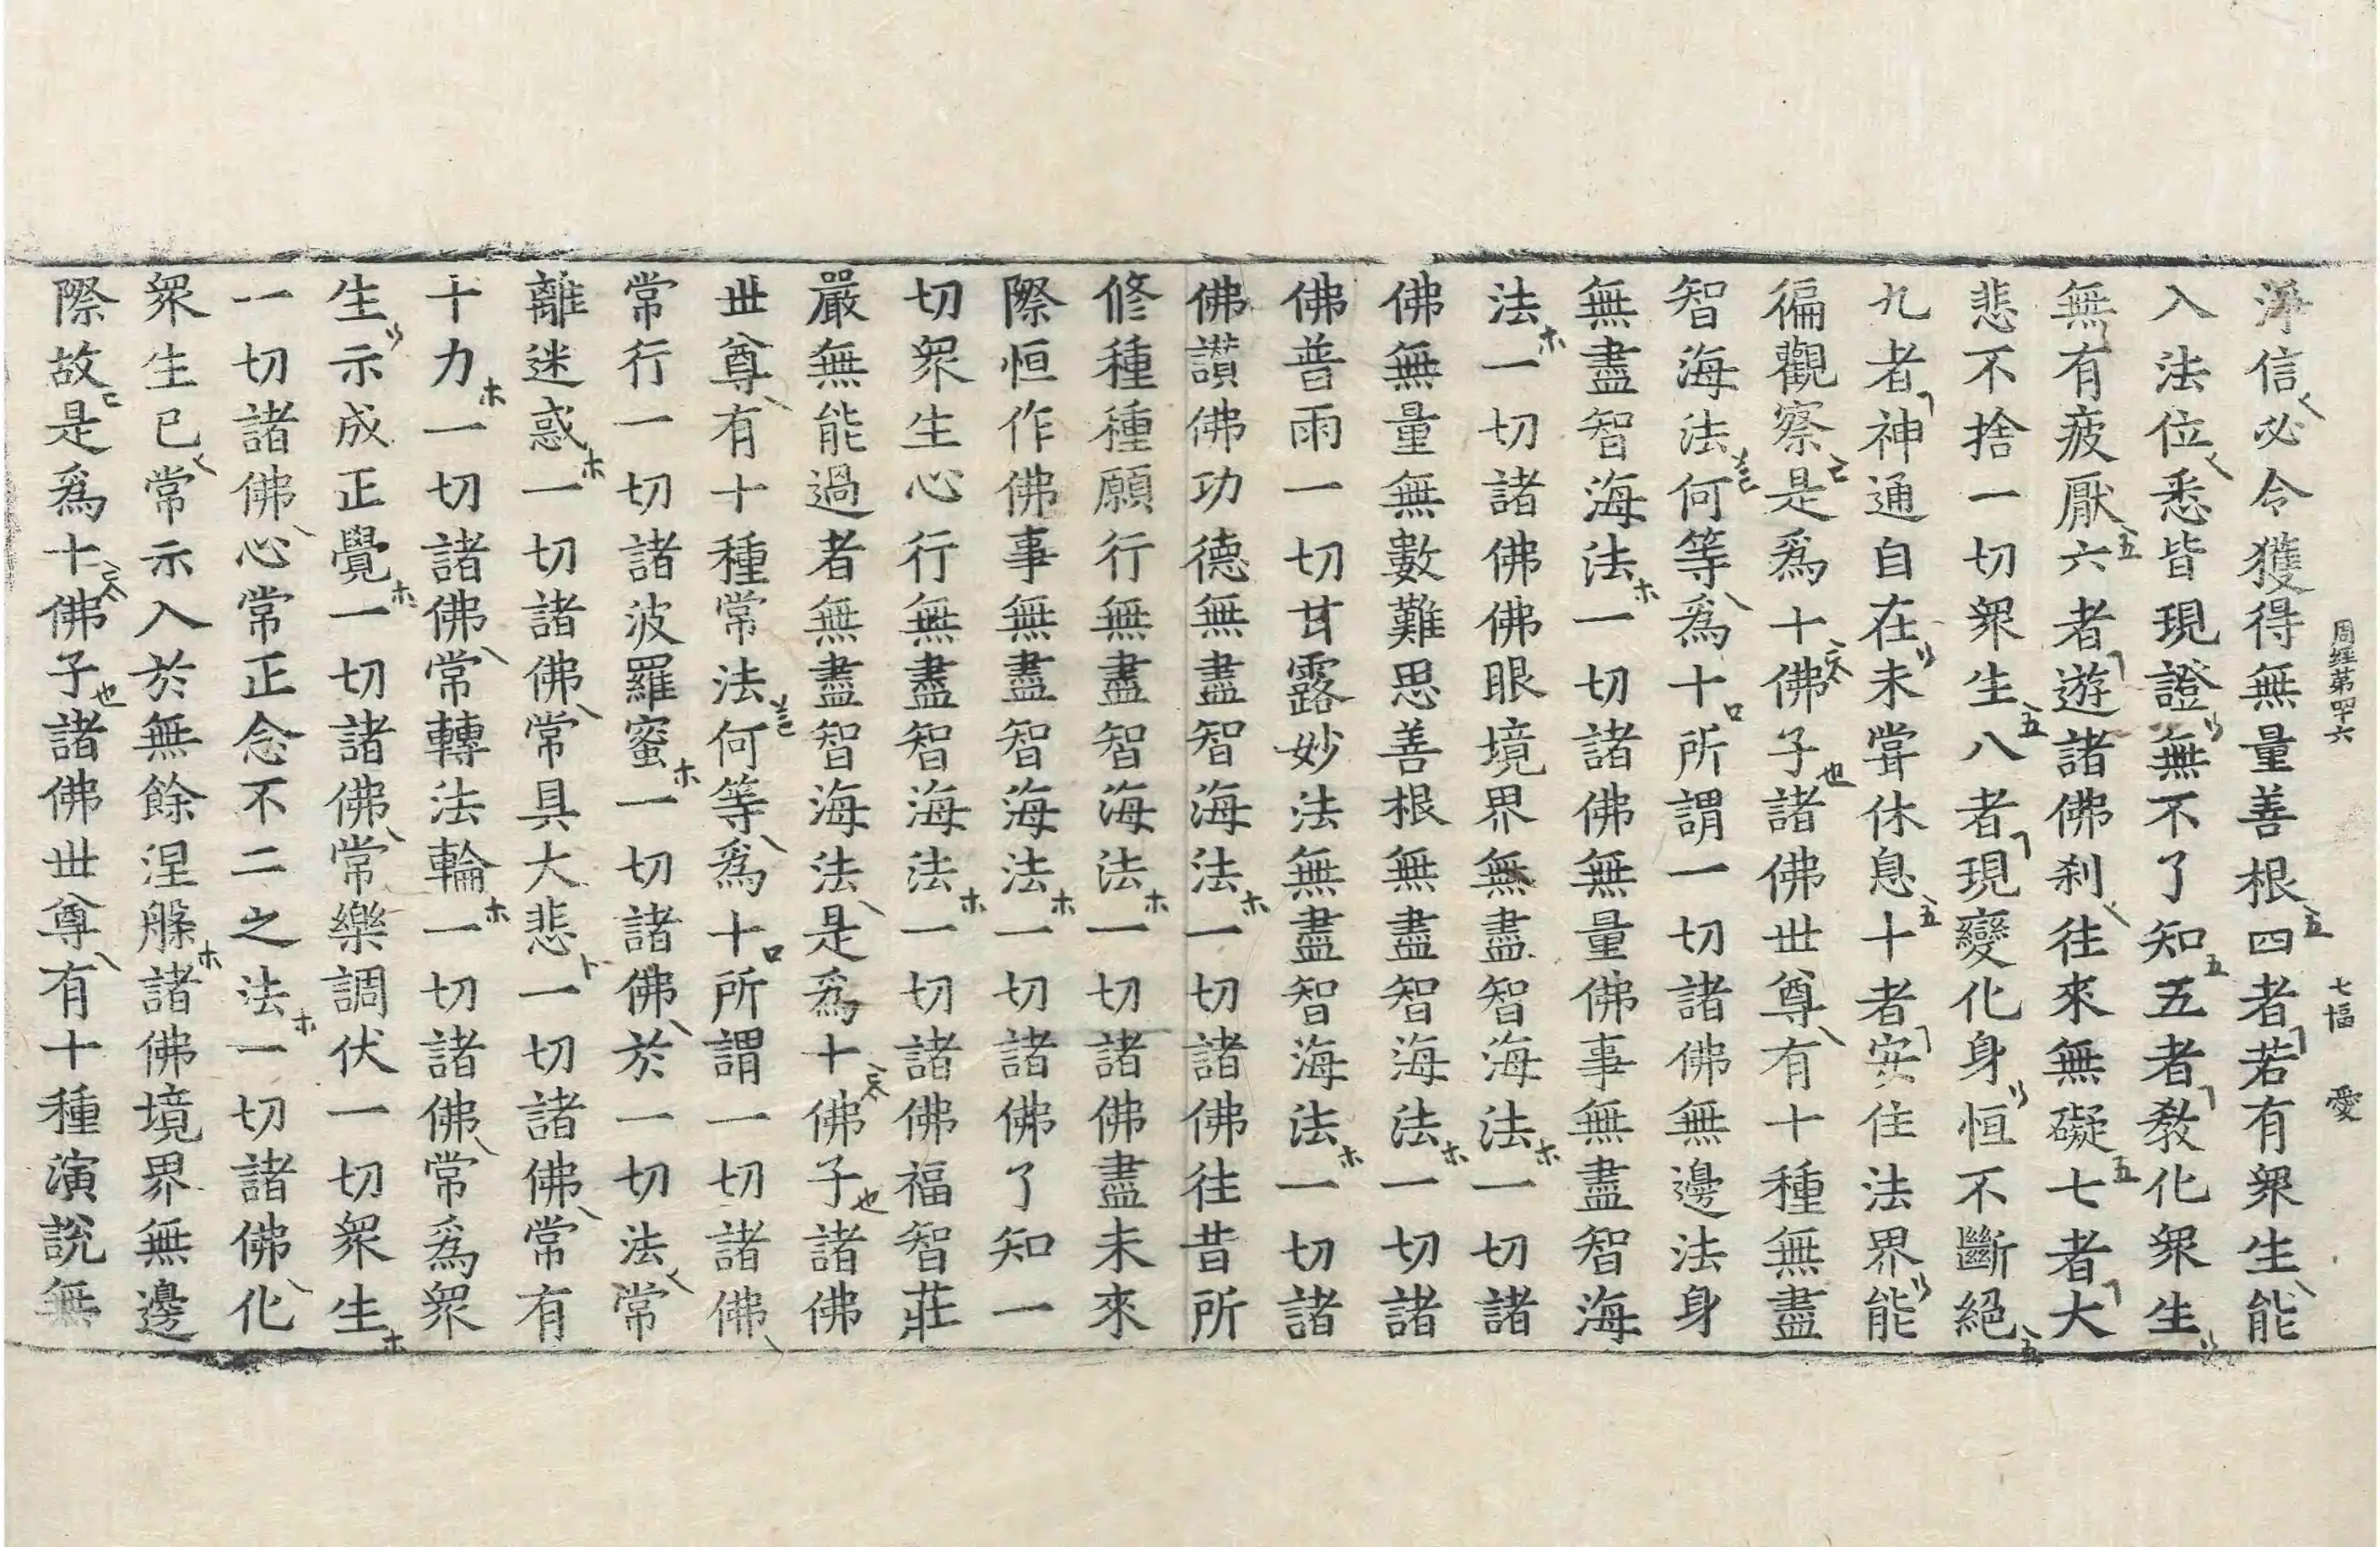 周経苐四十六 七幅 愛
淨信必令獲得無量善根四者若有衆生能
入法位悉皆現證無不了知五者敎化衆生
無有疲厭六者遊諸佛刹往來無礙七者大
悲不捨一切衆生八者現變化身恒不斷絕
九者神通自在未甞休息十者安住法界能
徧觀察是爲十佛子諸佛世尊有十種無盡
智海法何等爲十所謂一切諸佛無邊法身
無盡智海法一切諸佛無量佛事無盡智海
法一切諸佛佛眼境界無盡智海法一切諸
佛無量無數難思善根無盡智海法一切諸
佛普雨一切甘露妙法無盡智海法一切諸
佛讃佛功德無盡智海法一切諸佛往昔所
修種種願行無盡智海法一切諸佛盡未來
際恒作佛事無盡智海法一切諸佛了知一
切衆生心行無盡智海法一切諸佛福智莊
嚴無能過者無盡智海法是爲十佛子諸佛
世尊有十種常法何等爲十所謂一切諸佛
常行一切諸波羅蜜一切諸佛於一切法常
離迷惑一切諸佛常具大悲一切諸佛常有
十力一切諸佛常轉法輪一切諸佛常爲衆
生示成正覺一切諸佛常樂調伏一切衆生
一切諸佛心常正念不二之法一切諸佛化
衆生已常示入於無餘涅槃諸佛境界無邊
際故是爲十佛子諸佛世尊有十種演說無